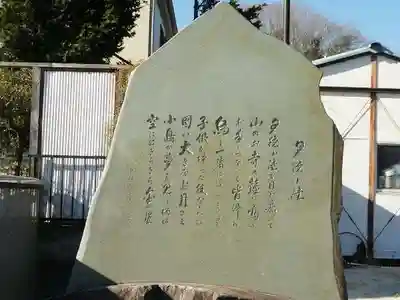 夕焼小焼
夕焼小焼で日が暮れて
山のお寺の鐘が鳴る
お手々つないで皆帰ろ
烏と一緒に帰りましょ
子供が帰った後からは
円い大きなお月さま
小鳥が夢を見る頃は
空にはきらきら金の星